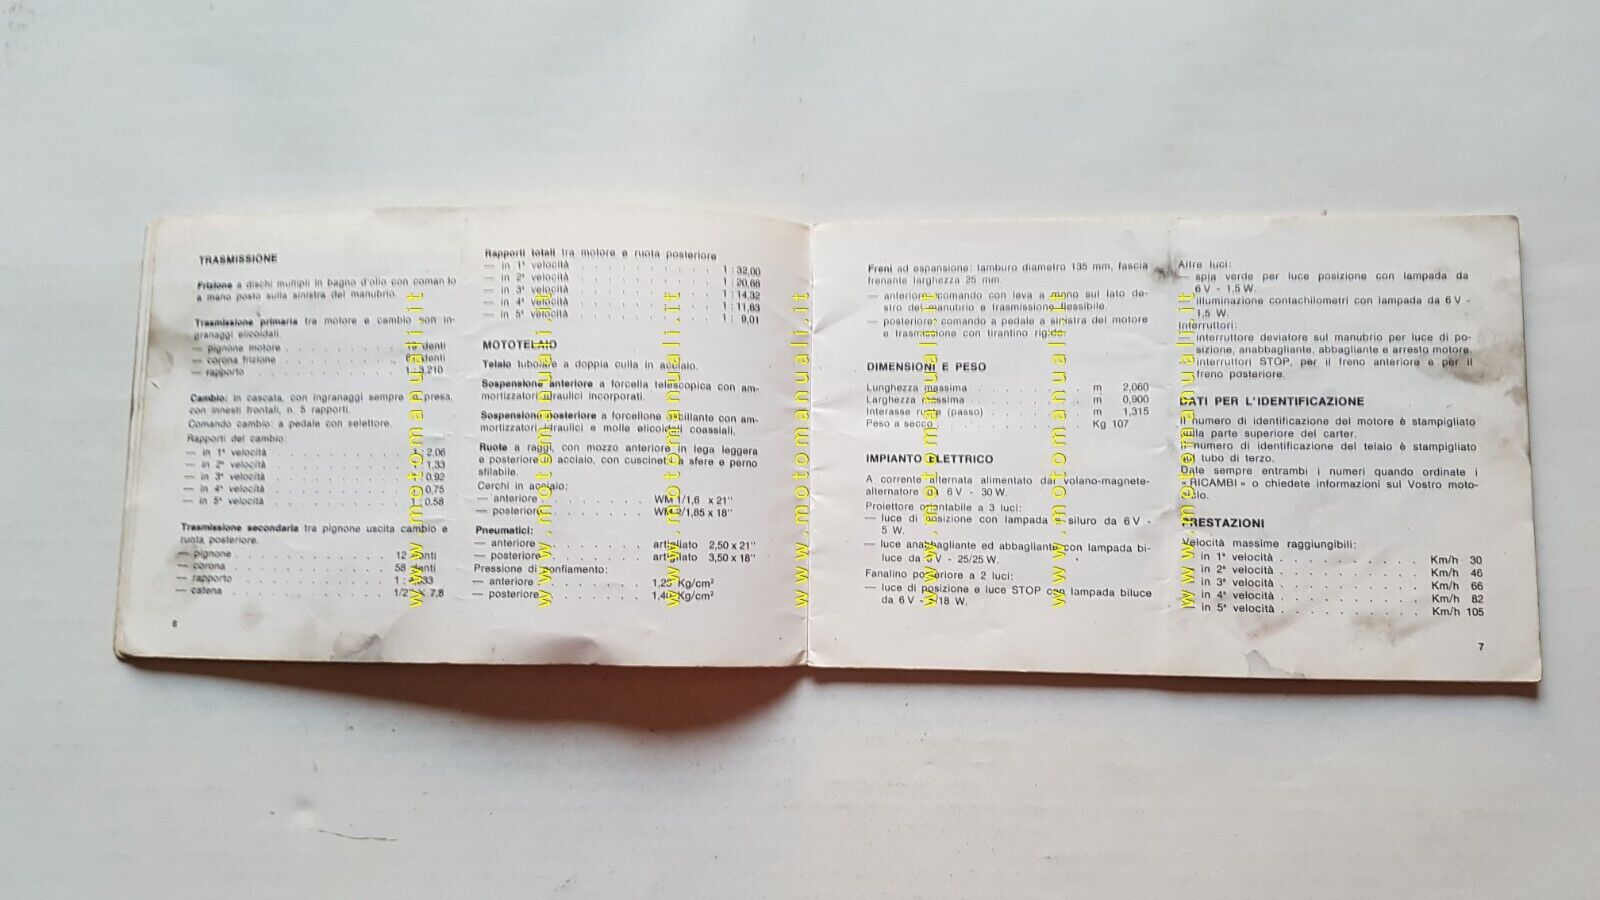 TRASMISSIONE
Frizione a dischi multipli in bagno d'olio con
a mano posto sulla sinistra del manubrio.
Trasmissione primaria tra motore e cambio con in-
granaggi elicoidali.
— pignone motore . . . . . denti
— corona frizione . . . . . denti
— rapporto . . . . . 3,210
Cambio: in cascata, con ingranaggi sempre presa,
con innesti frontali, n. 5 rapporti.
Comando cambio: a pedale con selettore.
Rapporti del cambio:
— in 1ª velocità . . . . . 2,06
— in 2ª velocità . . . . . 1,33
— in 3ª velocità . . . . . 0,92
— in 4ª velocità . . . . . 0,75
— in 5ª velocità . . . . . 0,58
Trasmissione secondaria tra pignone uscita cambio e
ruota posteriore.
— pignone . . . . . 12 denti
— corona . . . . . 58 denti
— rapporto . . . . . 1 :
— catena . . . . . 1/2" x 7,8
6
Rapporti totali tra motore e ruota posteriore
— in 1ª velocità . . . . . 1 : 32,00
— in 2ª velocità . . . . . 1 : 20,68
— in 3ª velocità . . . . . 1 : 14,32
— in 4ª velocità . . . . . 1 : 11,63
— in 5ª velocità . . . . . 1 : 9,01
MOTOTELAIO
Telaio tubolare a doppia culla in acciaio.
Sospensione anteriore a forcella telescopica con am-
mortizzatori idraulici incorporati.
Sospensione posteriore a forcellone oscillante con am-
mortizzatori idraulici e molle elicoidali coassiali.
Ruote a raggi, con mozzo anteriore in lega leggera
e posteriore in acciaio, con cuscinetti a sfere e perno
sfilabile.
Cerchi in acciaio:
— anteriore . . . . . WM 1/1,6 x 21"
— posteriore . . . . . WM 2/1,85 x 18"
Pneumatici:
— anteriore . . . . . artigliato 2,50 x 21"
— posteriore . . . . . artigliato 3,50 x 18"
Pressione di gonfiamento:
— anteriore . . . . . 1,25 Kg/cm²
— posteriore . . . . . 1,40 Kg/cm²
Freni ad espansione: tamburo diametro 135 mm, fascia
frenante larghezza 25 mm.
— anteriore: comando con leva a mano sul lato de-
stro del manubrio e trasmissione flessibile.
— posteriore: comando a pedale a sinistra del motore
e trasmissione con tirantino rigido.
DIMENSIONI E PESO
Lunghezza massima . . . . . m 2,060
Larghezza massima . . . . . m 0,900
Interasse ruote (passo) . . . . . m 1,315
Peso a secco . . . . . Kg 107
IMPIANTO ELETTRICO
A corrente alternata alimentato dal volano-magnete-
alternatore da 6 V - 30 W.
Proiettore orientabile a 3 luci:
— luce di posizione con lampada a siluro da 6 V -
5 W.
— luce anabbagliante ed abbagliante con lampada bi-
luce da 6 V - 25/25 W.
Fanalino posteriore a 2 luci:
— luce di posizione e luce STOP con lampada biluce
da 6 V - 18 W.
Altre luci:
— spia verde per luce posizione con lampada da
6 V - 1,5 W.
— illuminazione contachilometri con lampada da 6 V -
1,5 W.
Interruttori:
interruttore deviatore sul manubrio per luce di po-
sizione, anabbagliante, abbagliante e arresto motore.
interruttori STOP, per il freno anteriore e per il
freno posteriore.
DATI PER L'IDENTIFICAZIONE
Il numero di identificazione del motore è stampigliato
sulla parte superiore del carter.
Il numero di identificazione del telaio è stampigliato
sul tubo di terzo.
Date sempre entrambi i numeri quando ordinate i
« RICAMBI » o chiedete informazioni sul Vostro moto-
ciclo.
PRESTAZIONI
Velocità massime raggiungibili:
— in 1ª velocità . . . . . Km/h 30
— in 2ª velocità . . . . . Km/h 46
— in 3ª velocità . . . . . Km/h 66
— in 4ª velocità . . . . . Km/h 82
— in 5ª velocità . . . . . Km/h 105
7
www.motomanuali.it
www.motomanuali.it
www.motomanuali.it
www.motomanuali.it
www.motomanuali.it
www.motomanuali.it
www.motomanuali.it